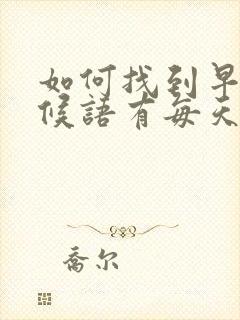 如何找到早
候語有每天
喬尔